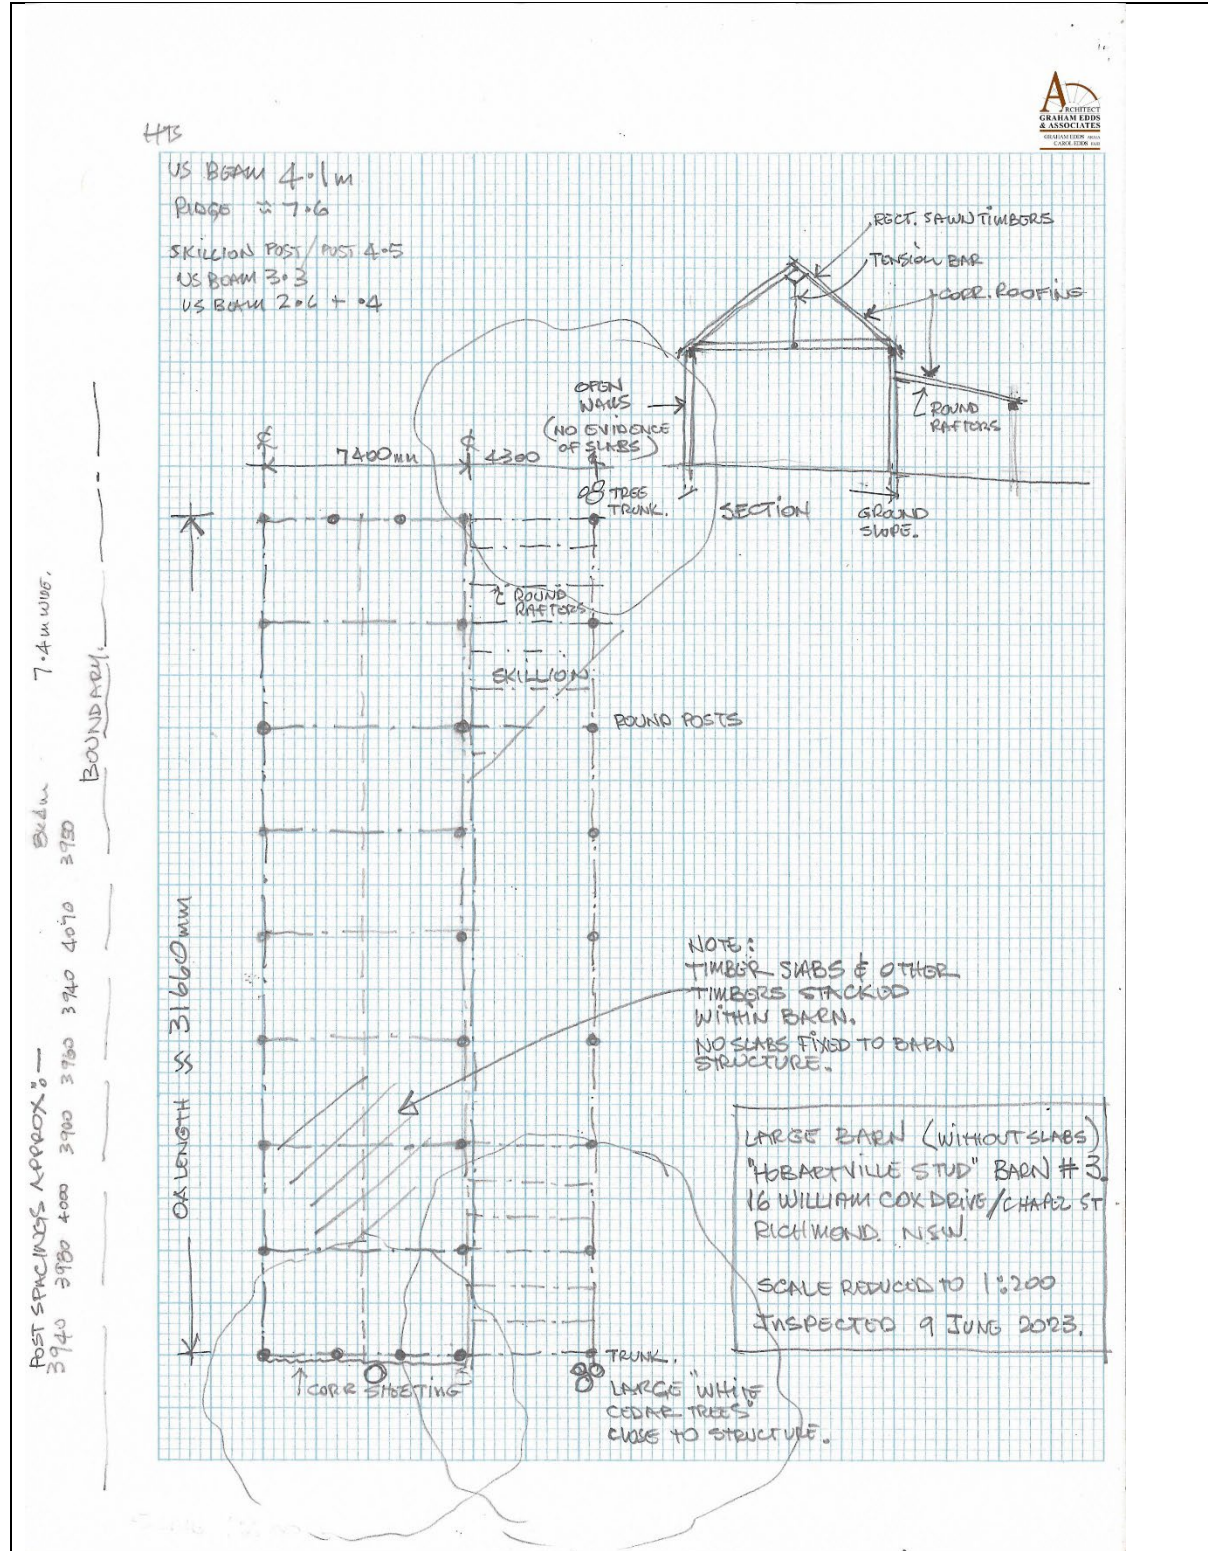 ARCHITECT
GRAHAM EDDS
& ASSOCIATES
HTS
US BEAM 4.1m
RIDGE ≈ 7.6
SKILLION POST/POST 4.5
US BEAM 3.3
US BEAM 2.6 + .4
RECT. SAWN TIMBERS
TENSION BAR
CORR. ROOFING
OPEN
WALLS
(NO EVIDENCE
OF SLABS)
ROUND
RAFTERS
7400mm
4300
TREE
TRUNK.
SECTION
GROUND
SLOPE.
ROUND
RAFTERS
SKILLION
ROUND POSTS
7.4m WIDE.
BOUNDARY.
OA LENGTH ≈ 31660mm
POST SPACINGS APPROX:—
3940 3980 4000 3900 3960 3940 4040 3950
NOTE:
TIMBER SLABS & OTHER
TIMBERS STACKED
WITHIN BARN.
NO SLABS FIXED TO BARN
STRUCTURE.
LARGE BARN (WITHOUT SLABS)
"HOBARTVILLE STUD" BARN #3.
16 WILLIAM COX DRIVE/CHAPEL ST
RICHMOND. NSW.
SCALE REDUCED TO 1:200
INSPECTED 9 JUNE 2023.
CORR SHEETING
TRUNK.
LARGE "WHITE
CEDAR TREES"
CLOSE TO STRUCTURE.